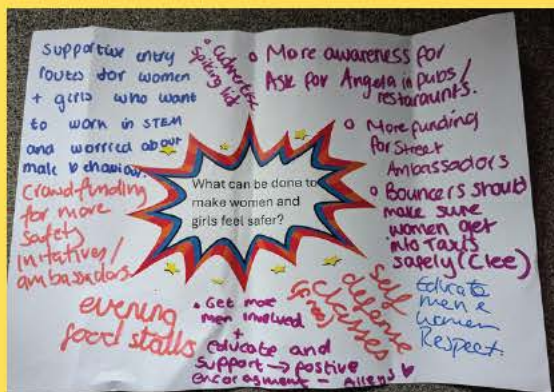 supportive entry
routes for women
+ girls who want
to work in STEM
and worried about
male behaviour.
• Advertise
spiking lid
• More awareness for
Ask for Angela in pubs/
restaraunts.
• More funding
for street
Ambassadors
• Bouncers should
make sure
women get
into Taxis
safely (Clee)
What can be done to
make women and
girls feel safer?
Crowd-funding
for more
safety
initatives/
ambassadors
evening
food stalls
• Get more
men involved
+
educate and
support → postive
encoragment - Allens
self
defense
classes
Educate
men &
women
Respect.